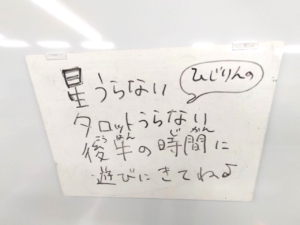 ひじりんの
星うらない
タロットうらない
後半の時間に
遊びにきてね♪